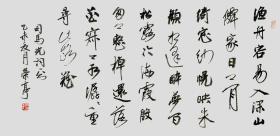 渔舟容易入深山
僊家日月闲
绮窗纱幌映朱
颜相逢醉梦间
松露冷海霞殷
匆匆整棹还落
花寂寂水潺潺重
寻此路难
司马光词